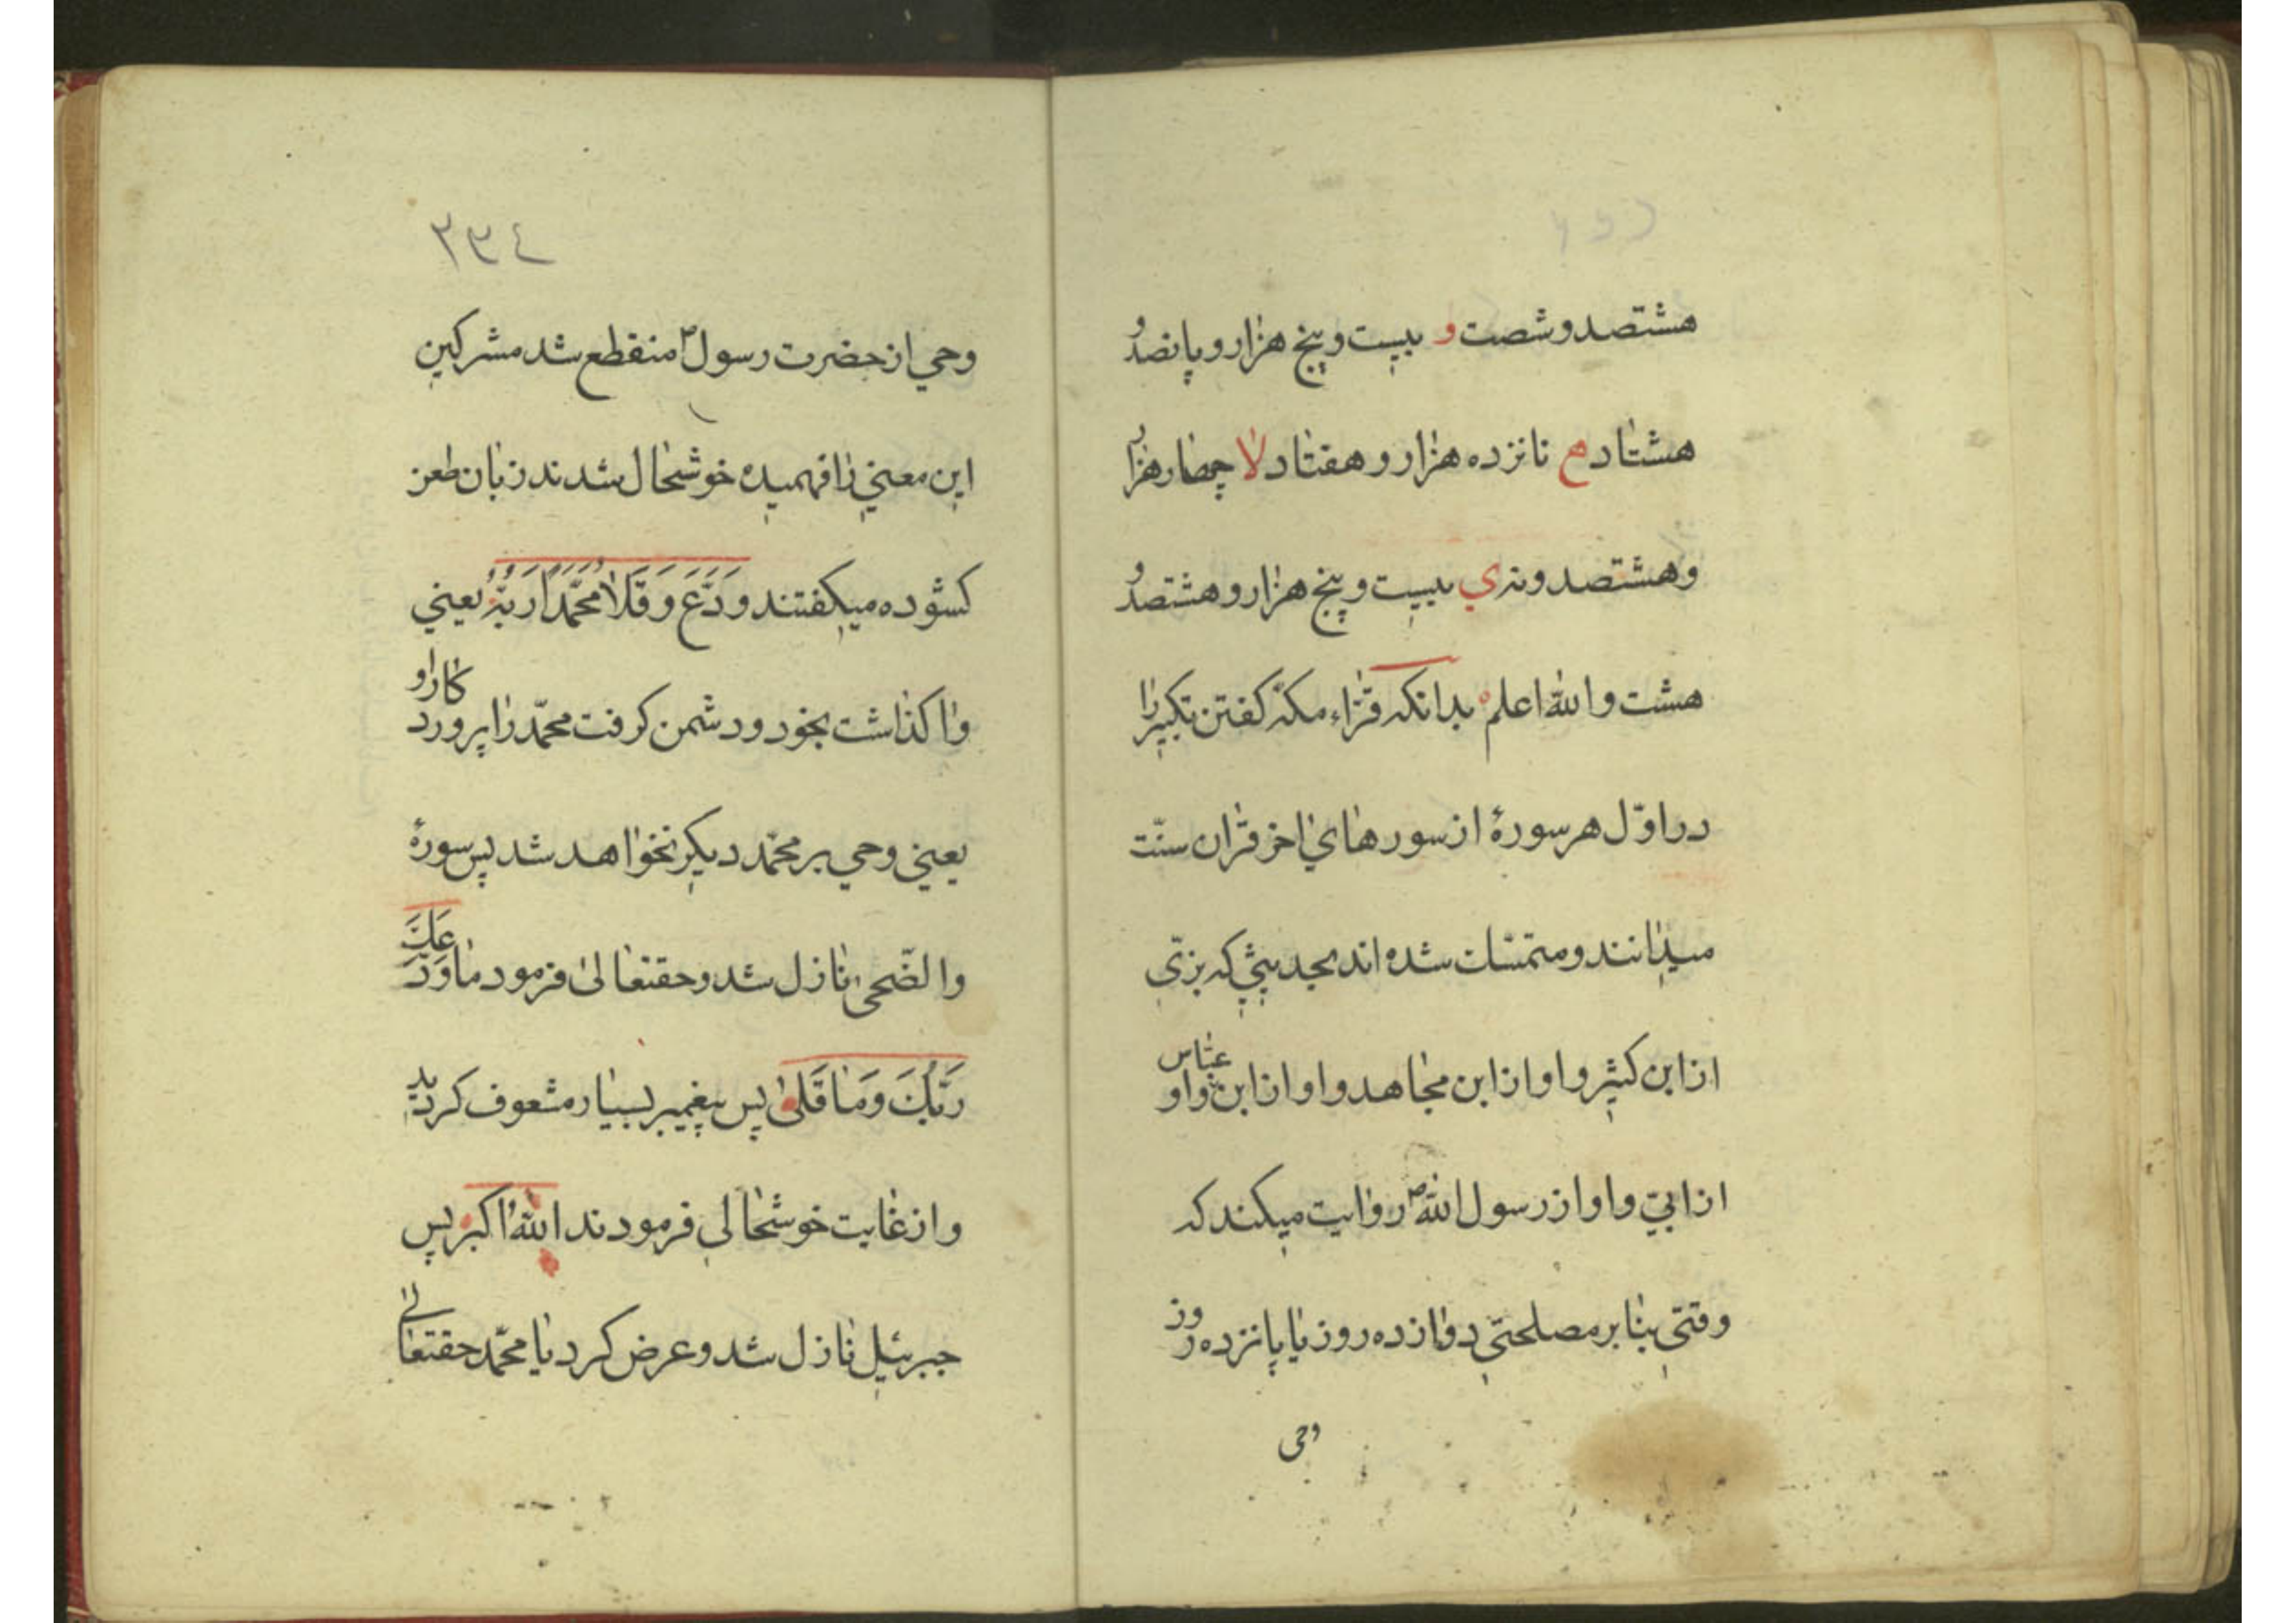 هشتصد و شصت و بیست و پنج هزار و پانصد و
هشتاد ه نانزده هزار و هفتاد لا چهار هزار
و هشتصد و نه ي بیست و پنج هزار و هشتصد و
هشت والله اعلم بدانکه قراء مکه کفتن تکبیر را
در اوّل هر سورهٔ از سورهای اخر قران سنّت
میدانند و متمسّک شده اند بحدیثی که بزّی
از ابن کثیر و او از ابن مجاهد و او از ابن عباس و او
از ابیّ و او از رسول الله ص روایت میکند که
وقتی بنا بر مصلحتی دوازده روز یا پانزده روز
وحی
٢٣٤
وحی از حضرت رسول ص منقطع شد مشرکین
این معنی را فهمیده خوشحال شدند زبان طعن
کشوده میکفتند وَدَّعَ وَقَلَا مُحَمَّدًا رَبُّهُ یعنی
وا کذاشت بخود و دشمن کرفت محمّد را پروردکار او
یعنی وحی بر محمّد دیکر نخواهد شد پس سورهٔ
والضّحی نازل شد و حقتعالی فرمود مَا وَدَّعَكَ
رَبُّكَ وَمَا قَلَىٰ پس پیغمبر بسیار مشعوف کردید
و از غایت خوشحالی فرمودند اللهُ اکبر پس
جبرئیل نازل شد و عرض کرد یا محمّد حقتعالی